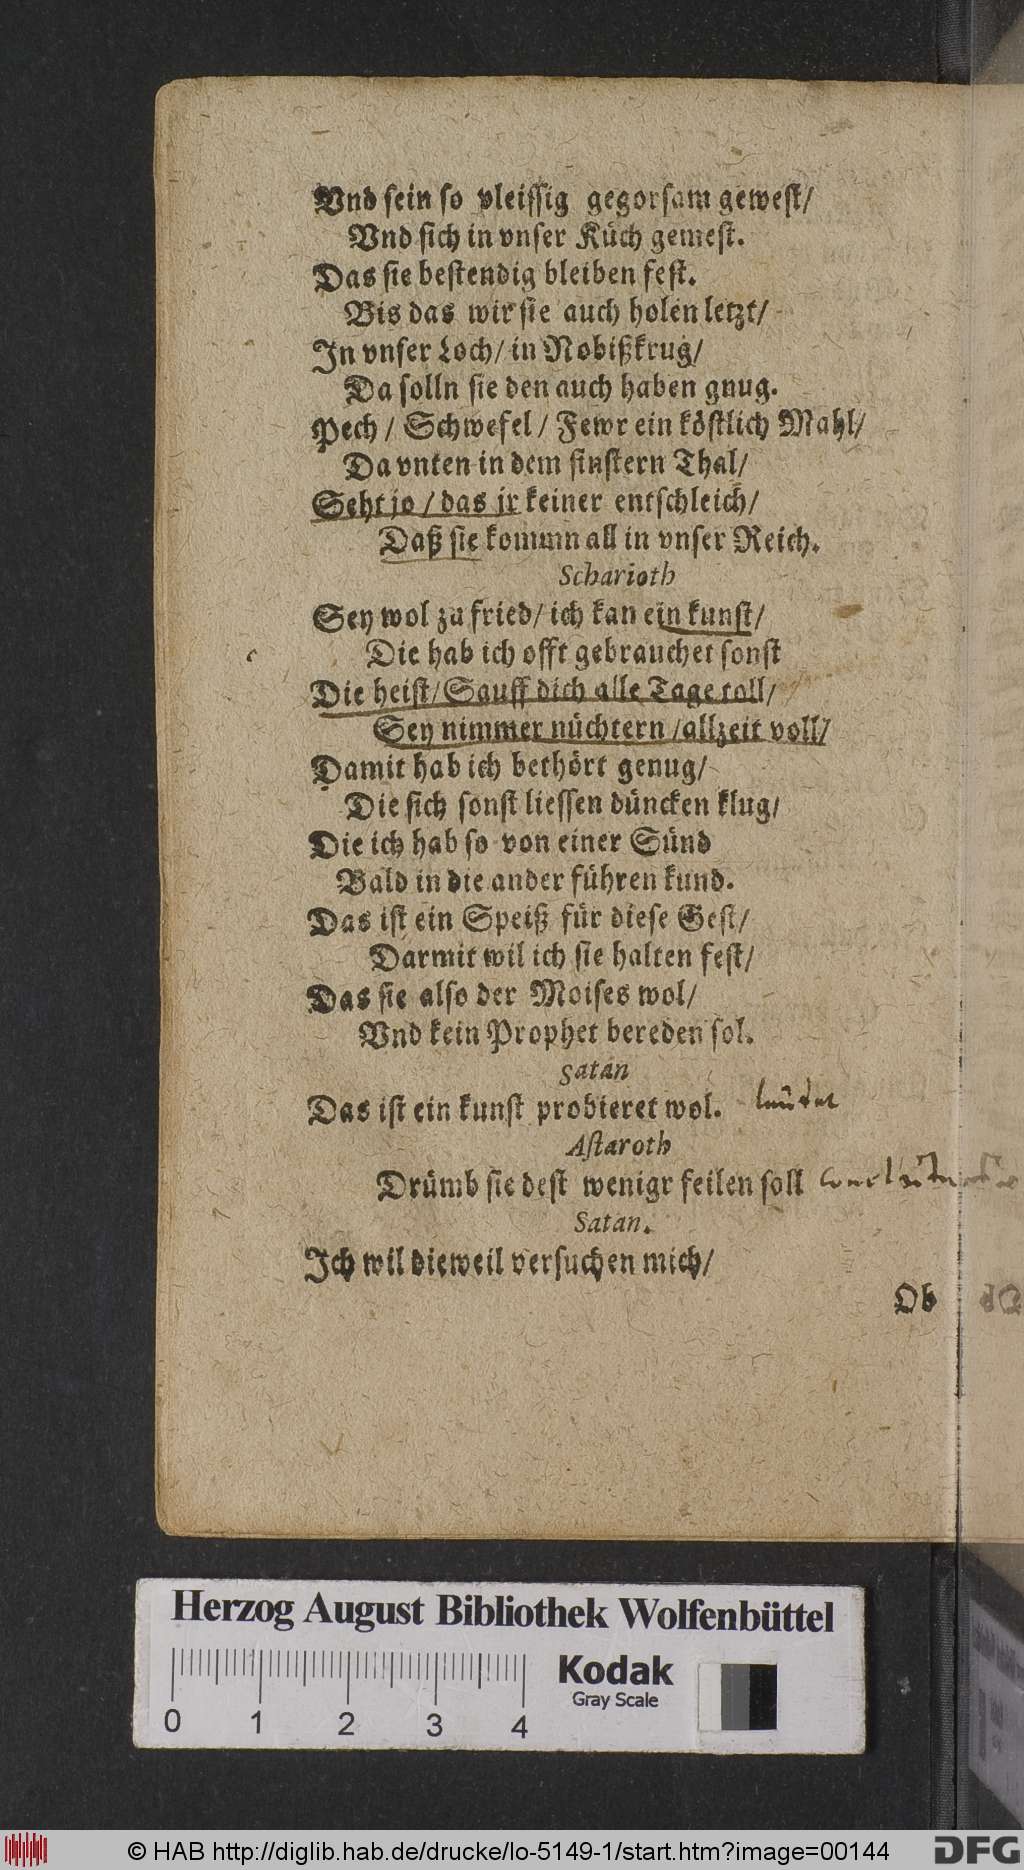 Vnd sein so vleissig gegorsam gewest/
Vnd sich in vnser Küch gemest.
Das sie bestendig bleiben fest.
Bis das wir sie auch holen letzt/
In vnser Loch/ in Nobißkrug/
Da solln sie den auch haben gnug.
Pech / Schwefel / Fewr ein köstlich Mahl/
Da vnten in dem finstern Thal/
Seht jo / das jr keiner entschleich/
Daß sie kommn all in vnser Reich.
Scharioth
Sey wol zu fried/ ich kan ein kunst/
Die hab ich offt gebrauchet sonst
Die heist/ Sauff dich alle Tage toll/
Sey nimmer nüchtern /allzeit voll/
Damit hab ich bethört genug/
Die sich sonst liessen düncken klug/
Die ich hab so von einer Sünd
Bald in die ander führen kund.
Das ist ein Speiß für diese Gest/
Darmit wil ich sie halten fest/
Das sie also der Moises wol/
Vnd kein Prophet bereden sol.
Satan
Das ist ein kunst probieret wol.
Astaroth
Drümb sie dest wenigr feilen soll
Satan.
Ich wil dieweil versuchen mich/
Ob
Herzog August Bibliothek Wolfenbüttel
0 1 2 3 4
Kodak
Gray Scale
© HAB http://diglib.hab.de/drucke/lo-5149-1/start.htm?image=00144
DFG